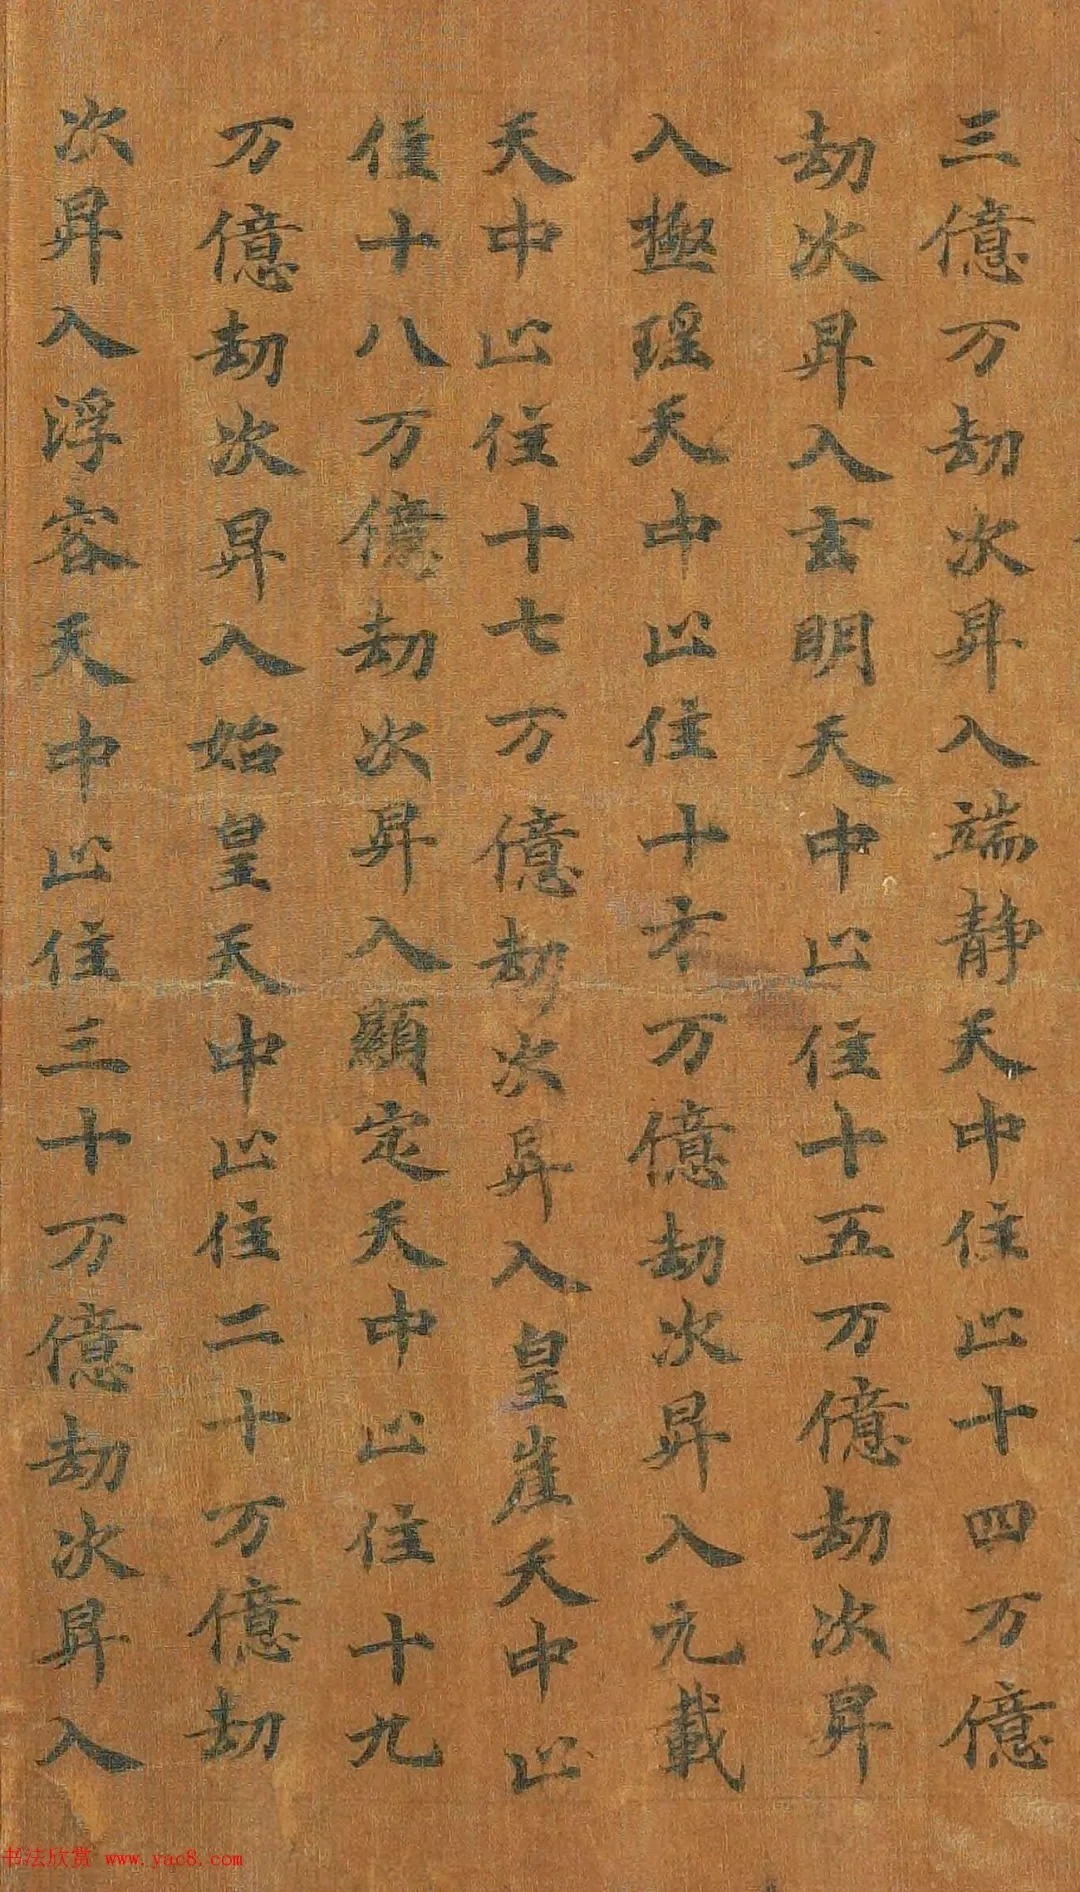 三億万劫次昇入端静天中住止十四万億
劫次昇入玄明天中止住十五万億劫次昇
入極瑶天中止住十六万億劫次昇入元載
天中止住十七万億劫次昇入皇崖天中止
住十八万億劫次昇入顯定天中止住十九
万億劫次昇入始皇天中止住二十万億劫
次昇入浮容天中止住三十万億劫次昇入
书法欣赏 www.yac8.com